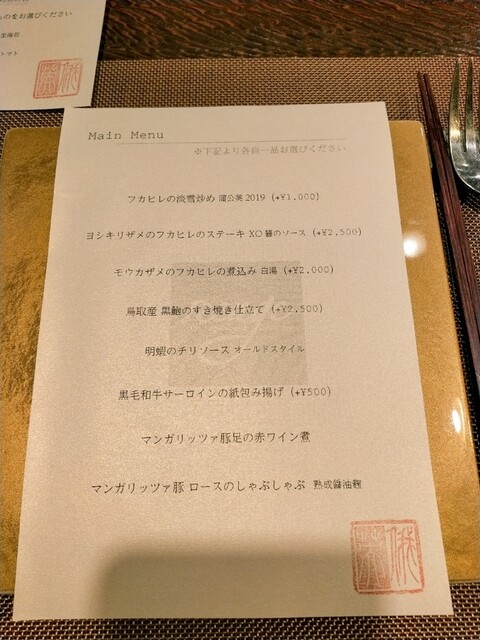 ものをお選びください
トマト
Main Menu
※下記より各自一品お選びください
フカヒレの淡雪炒め 蒲公英2019 (+¥1,000)
ヨシキリザメのフカヒレのステーキ XO醬のソース (+¥2,500)
モウカザメのフカヒレの煮込み 白湯 (+¥2,000)
鳥取産 黒鮑のすき焼き仕立て (+¥2,500)
明蝦のチリソース オールドスタイル
黒毛和牛サーロインの紙包み揚げ (+¥500)
マンガリッツァ豚足の赤ワイン煮
マンガリッツァ豚 ロースのしゃぶしゃぶ 熟成醤油麹